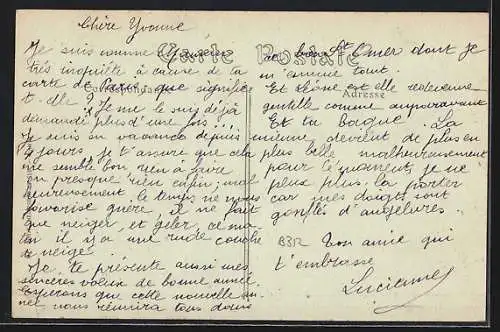 Chère Yvonne
Carte Postale
Correspondance
Adresse
Je suis comme
très inquiète à cause de ta
carte de laro que signifie
t-elle ? Je me le suis déjà
demandé plus d'une fois.
Je suis en vacance depuis
3 jours, je t'assure que cela
me semble bon rien à faire
en presque rien enfin; mal
heureusement le temps ne nous
favorise guère, il ne fait
que neiger, et geler, ce ma
tin il y a une rude couche
de neige.
Je te présente aussi mes
sincères voeux de bonne année.
Espérons que cette nouvelle an
née nous réunira tous dans
ce bon St Omer dont je
m'ennuie tant.
Et Léone est elle redevenue
gentille comme auparavant
Et ta Bague. La
mienne devient de plus en
plus belle malheureusement
pour le moment je ne
peux plus la porter
car mes doigts sont
gonflés d'angelures.
B3R
Ton amie qui
t'embrasse
Lucienne